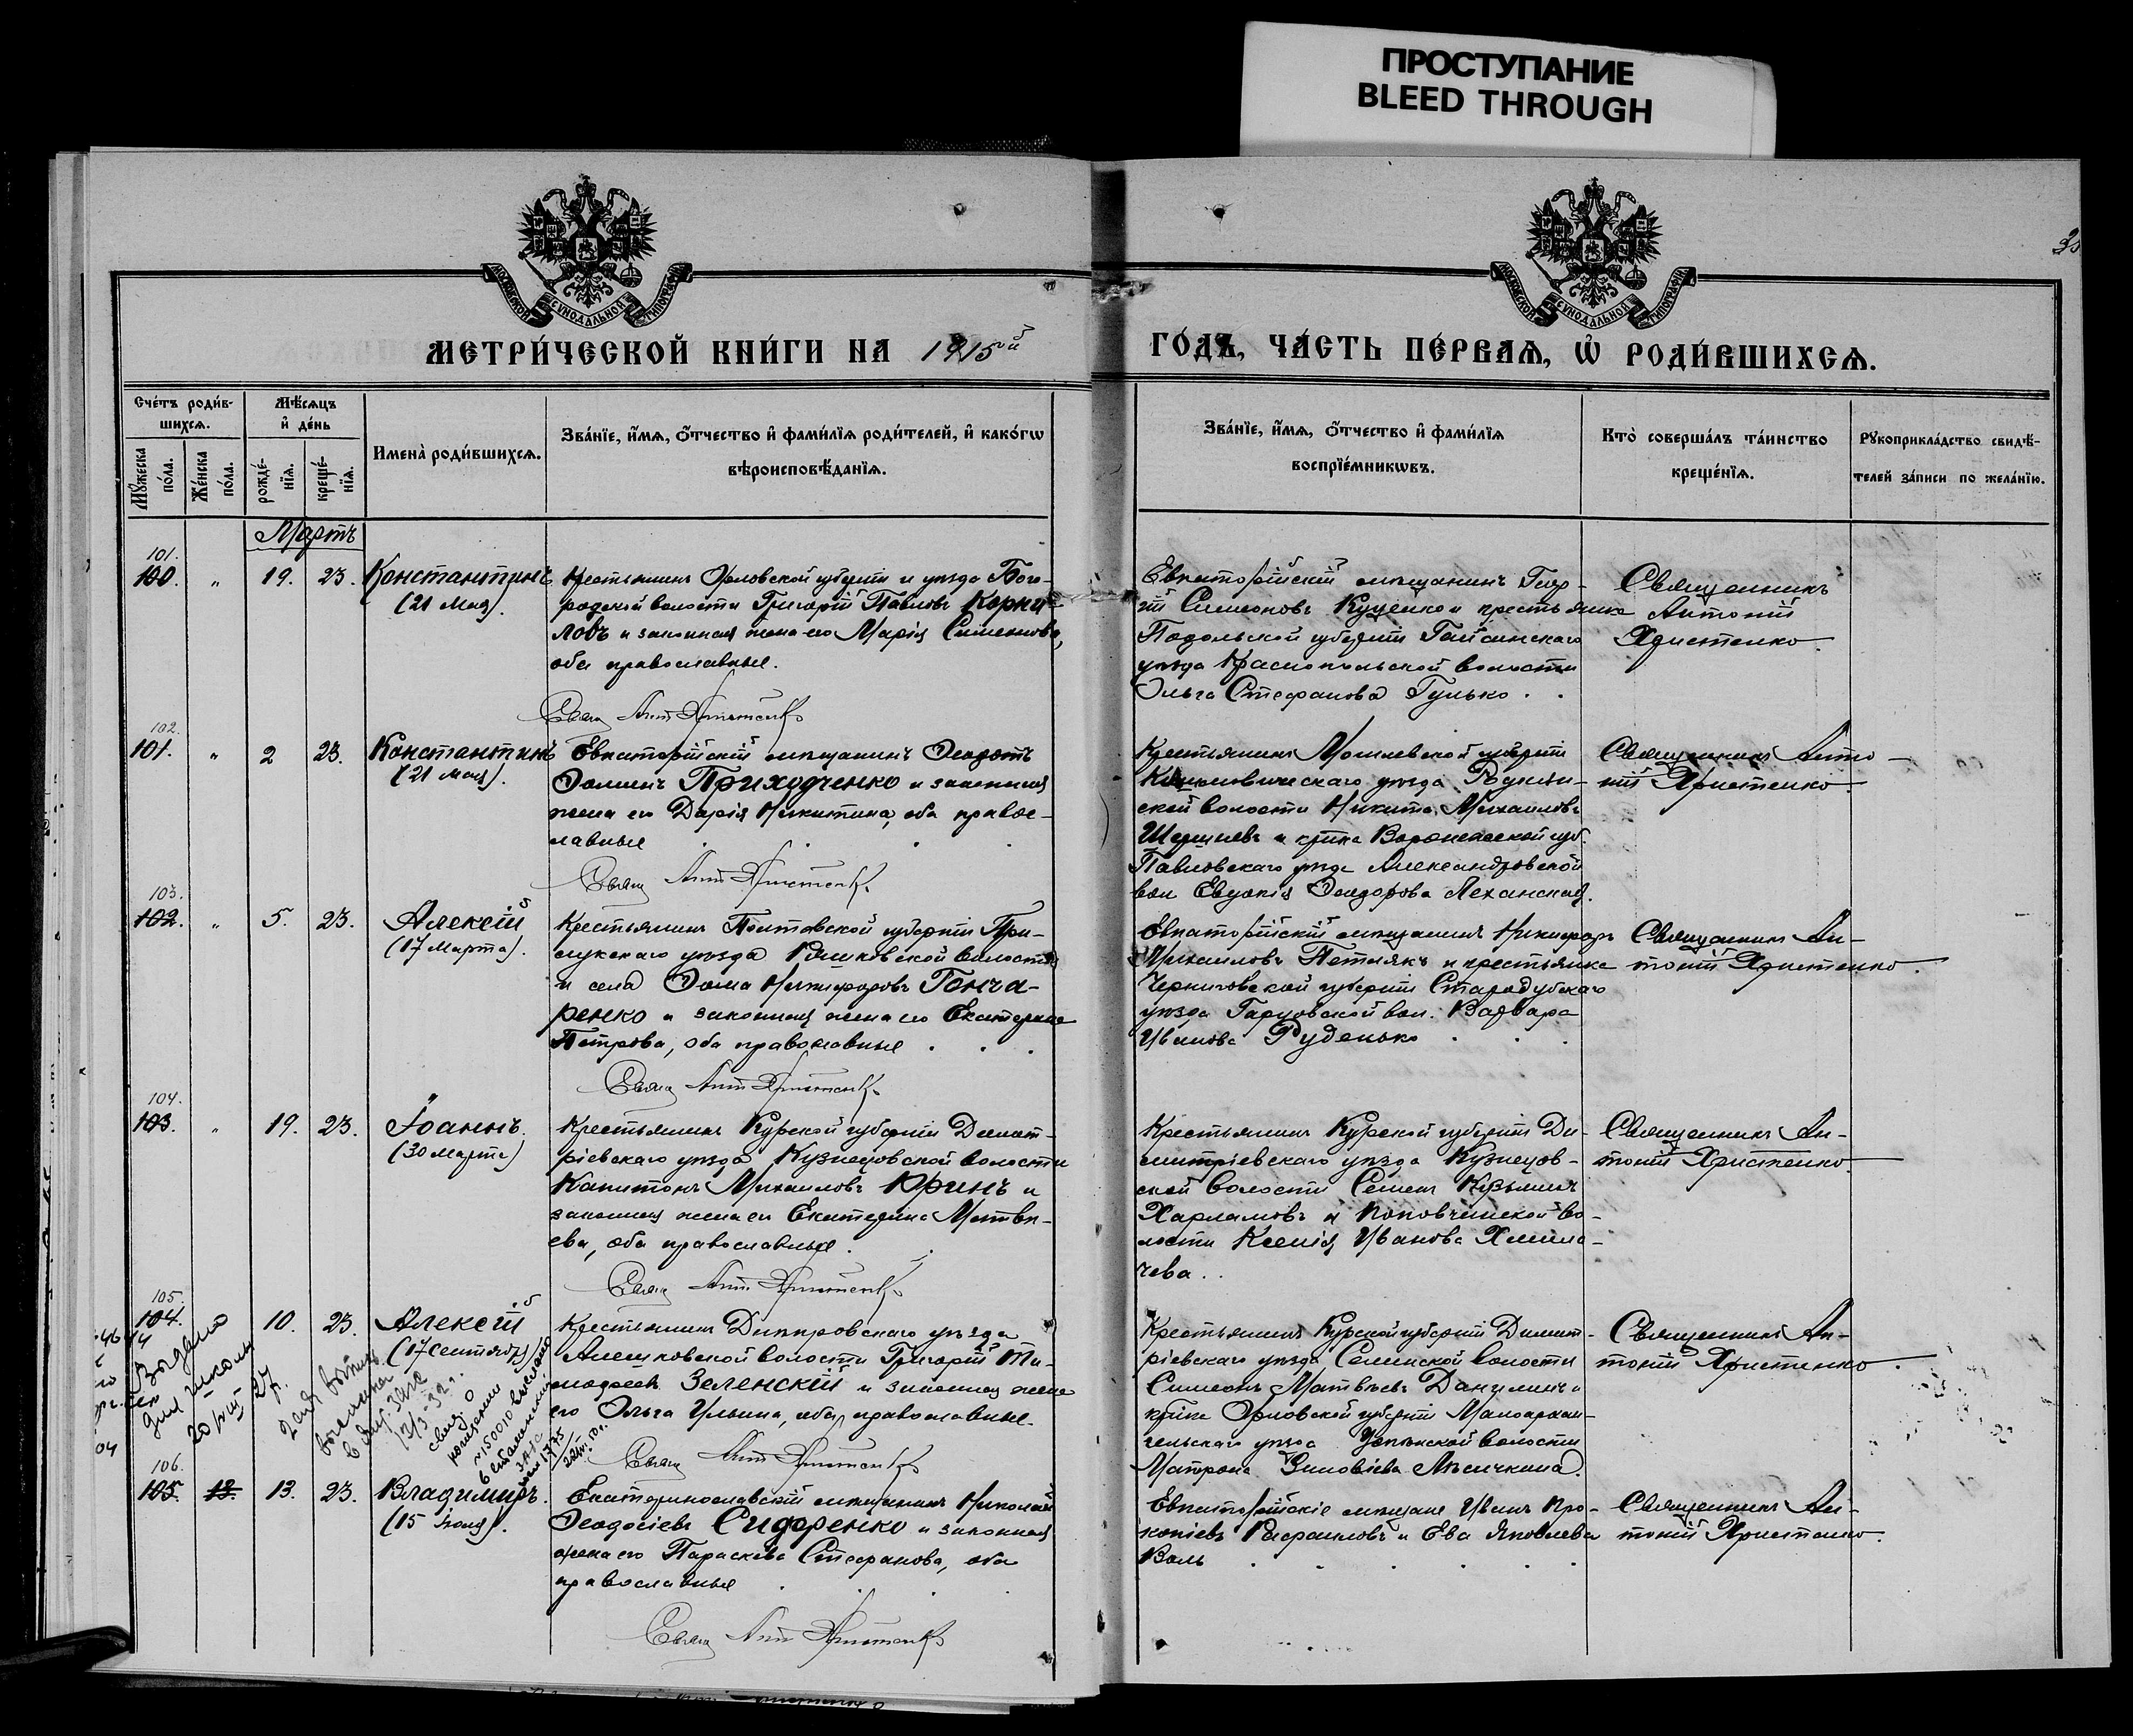 ПРОСТУПАНИЕ
BLEED THROUGH
МОСКОВСКОЙ СѴНОДАЛЬНОЙ ТИПОГРАФІИ
МОСКОВСКОЙ СѴНОДАЛЬНОЙ ТИПОГРАФІИ
МЕТРИ́ЧЕСКОЙ КНИ́ГИ НА 1915ой
ГО́ДЪ, ЧА́СТЬ ПЕ́РВАѦ, Ѡ҆ РОДИ́ВШИХСѦ.
Сче́тъ роди́в-
шихсѧ.
Мꙋ́жеска по́ла.
Же́нска по́ла.
Мѣ́сѧцъ
и҆ де́нь
рожде́-
нїѧ.
креще́-
нїѧ.
Имена̀ роди́вшихсѧ.
Зва́нїе, и҆́мѧ, ѻ҆́тчество и҆ фами́лїѧ роди́телей, и҆ како́гѡ
вѣроисповѣ́данїѧ.
Зва́нїе, и҆́мѧ, ѻ҆́тчество и҆ фами́лїѧ
воспрїе́мникѡвъ.
Кто̀ соверша́лъ та́инство
креще́нїѧ.
Рꙋкоприкла́дство свидѣ́-
телей за́писи по жела́нїю.
Мартъ
101.
100. " 19. 23. Константинъ
(21 Мая).
Крестьянинъ Орловской губерніи и уѣзда Бого-
родской волости Григорій Павловъ Корни-
ловъ и законная жена его Марія Симеонова,
оба православные.
Свящ Ант Христенко
Евпаторійскій мѣщанинъ Геор-
гій Симеоновъ Куценко и крестьянка
Подольской губерніи Гайсинскаго
уѣзда Краснопольской волости
Ольга Стефанова Гунько.
Священникъ
Антоній
Христенко.
102.
101. " 2 23. Константинъ
(21 мая).
Евпаторійскій мѣщанинъ Ѳеодотъ
Ѳоминъ Приходченко и законная
жена его Дарія Никитина, оба право-
славные
Свящ Ант Христенко
Крестьянинъ Могилевской губерніи
Климовическаго уѣзда
ской волости Никита Михаиловъ
и крѣка Воронежской губ.
Павловскаго уѣзда Александровской
вол Евдокія Ѳеодорова Леханская.
Священникъ Анто-
ній Христенко.
103.
102. " 5. 23. Алексій
(17 Марта).
Крестьянинъ Полтавской губерніи При-
лукскаго уѣзда волости
и села Ѳома Никифоровъ Гонча-
ренко и законная жена его Екатерина
Петрова, оба православные
Свящ Ант Христенко
Евпаторійскій мѣщанинъ Никифоръ
Михаиловъ Петлякъ и крестьянка
Черниговской губерніи Стародубскаго
уѣзда вол. Варвара
Иванова Руденько
Священникъ Ан-
тоній Христенко.
104.
103. " 19. 23. Іоаннъ.
(30 марта)
Крестьянинъ Курской губерніи Димит-
ріевскаго уѣзда Кузнецовской волости
Капитонъ Михаиловъ Юринъ и
законная жена его Екатерина Матвѣ-
ева, оба православные.
Свящ Ант. Христенко
Крестьянинъ Курской губерніи Ди-
митріевскаго уѣзда Кузнецов-
ской волости Семенъ Кузьминъ
Харламовъ и во-
лости Ксенія Иванова
чева.
Священникъ Ан-
тоній Христенко.
105.
104. 10. 23. Алексій
(17 Сентября)
Крестьянинъ Днѣпровскаго уѣзда
Алешковской волости Григорій Ти-
моѳеевъ Зеленскій и законная жена
его Ольга Ильина, оба православные.
Свящ Ант Христенко
Крестьянинъ Курской губерніи Димит-
ріевскаго уѣзда волости
Симеонъ Матвѣевъ Данилинъ и
крѣка Орловской губерніи Малоархан-
гельскаго уѣзда волости
Матрона Зиновіева
Священникъ Ан-
тоній Христенко.
Выдано
для школы
27 г.
106.
105. 13. 13. 23. Владиміръ.
(15 Іюля).
Екатеринославскій мѣщанинъ Николай
Ѳеодосіевъ Сидоренко и законная
жена его Параскева Стефанова, оба
православные
Свящ Ант Христенко
Евпаторійскіе мѣщане Иванъ Про-
копіевъ и Ева Яковлева
Валь
Священникъ Ан-
тоній Христенко.